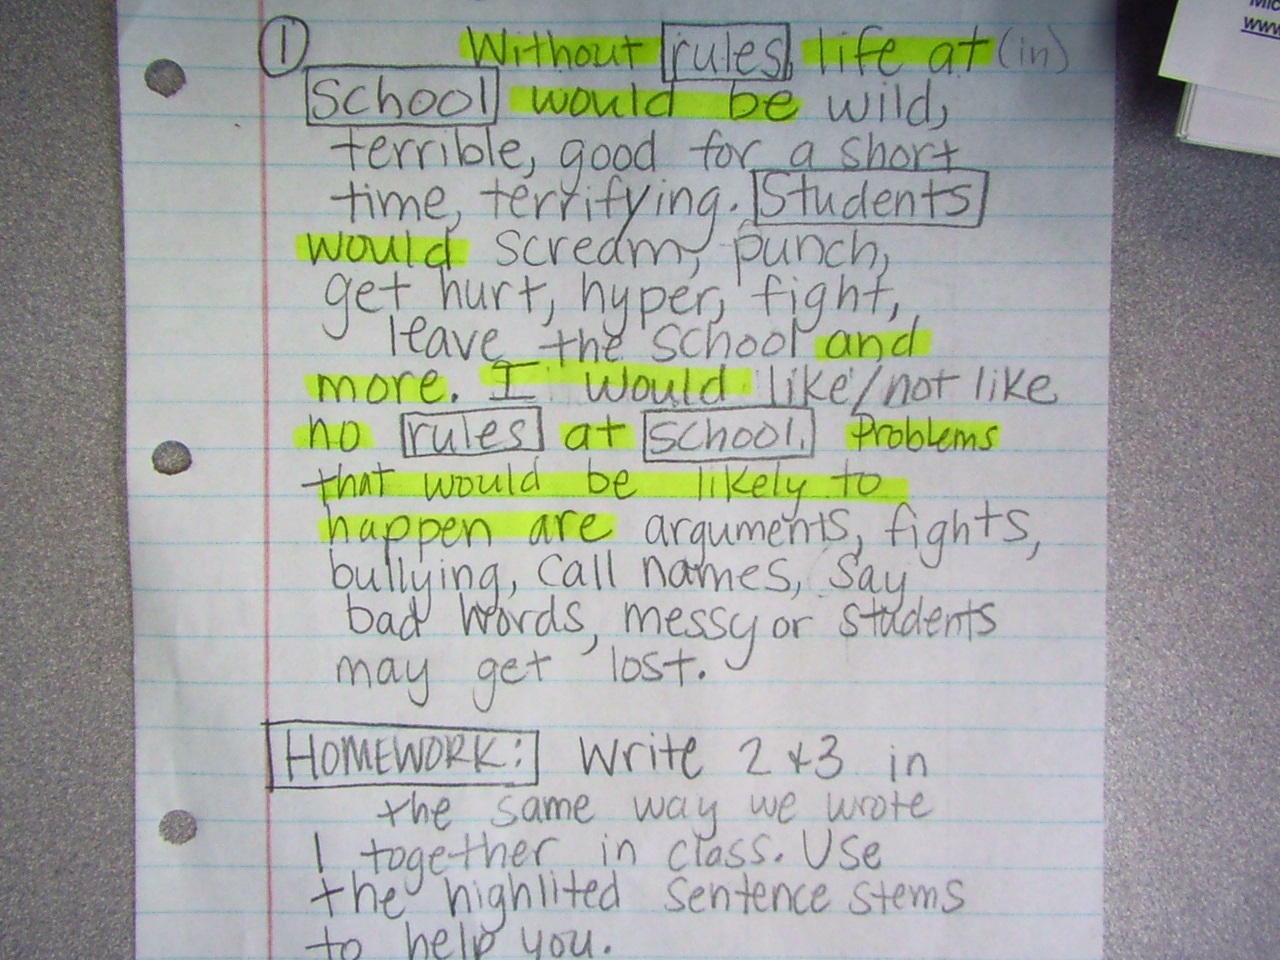 ① Without rules, life at (in)
School would be wild,
terrible, good for a short
time, terrifying. Students
would scream, punch,
get hurt, hyper, fight,
leave the school and
more. I would like/not like
no rules at school. Problems
that would be likely to
happen are arguments, fights,
bullying, call names, say
bad words, messy or students
may get lost.
HOMEWORK: Write 2 & 3 in
the same way we wrote
1 together in class. Use
the highlited sentence stems
to help you.
www